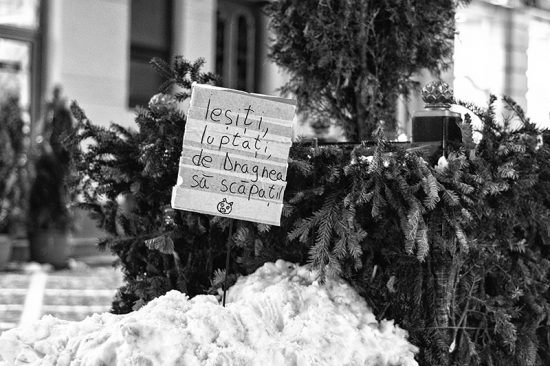 Ieșiți,
luptați,
de Dragnea
să scăpați!